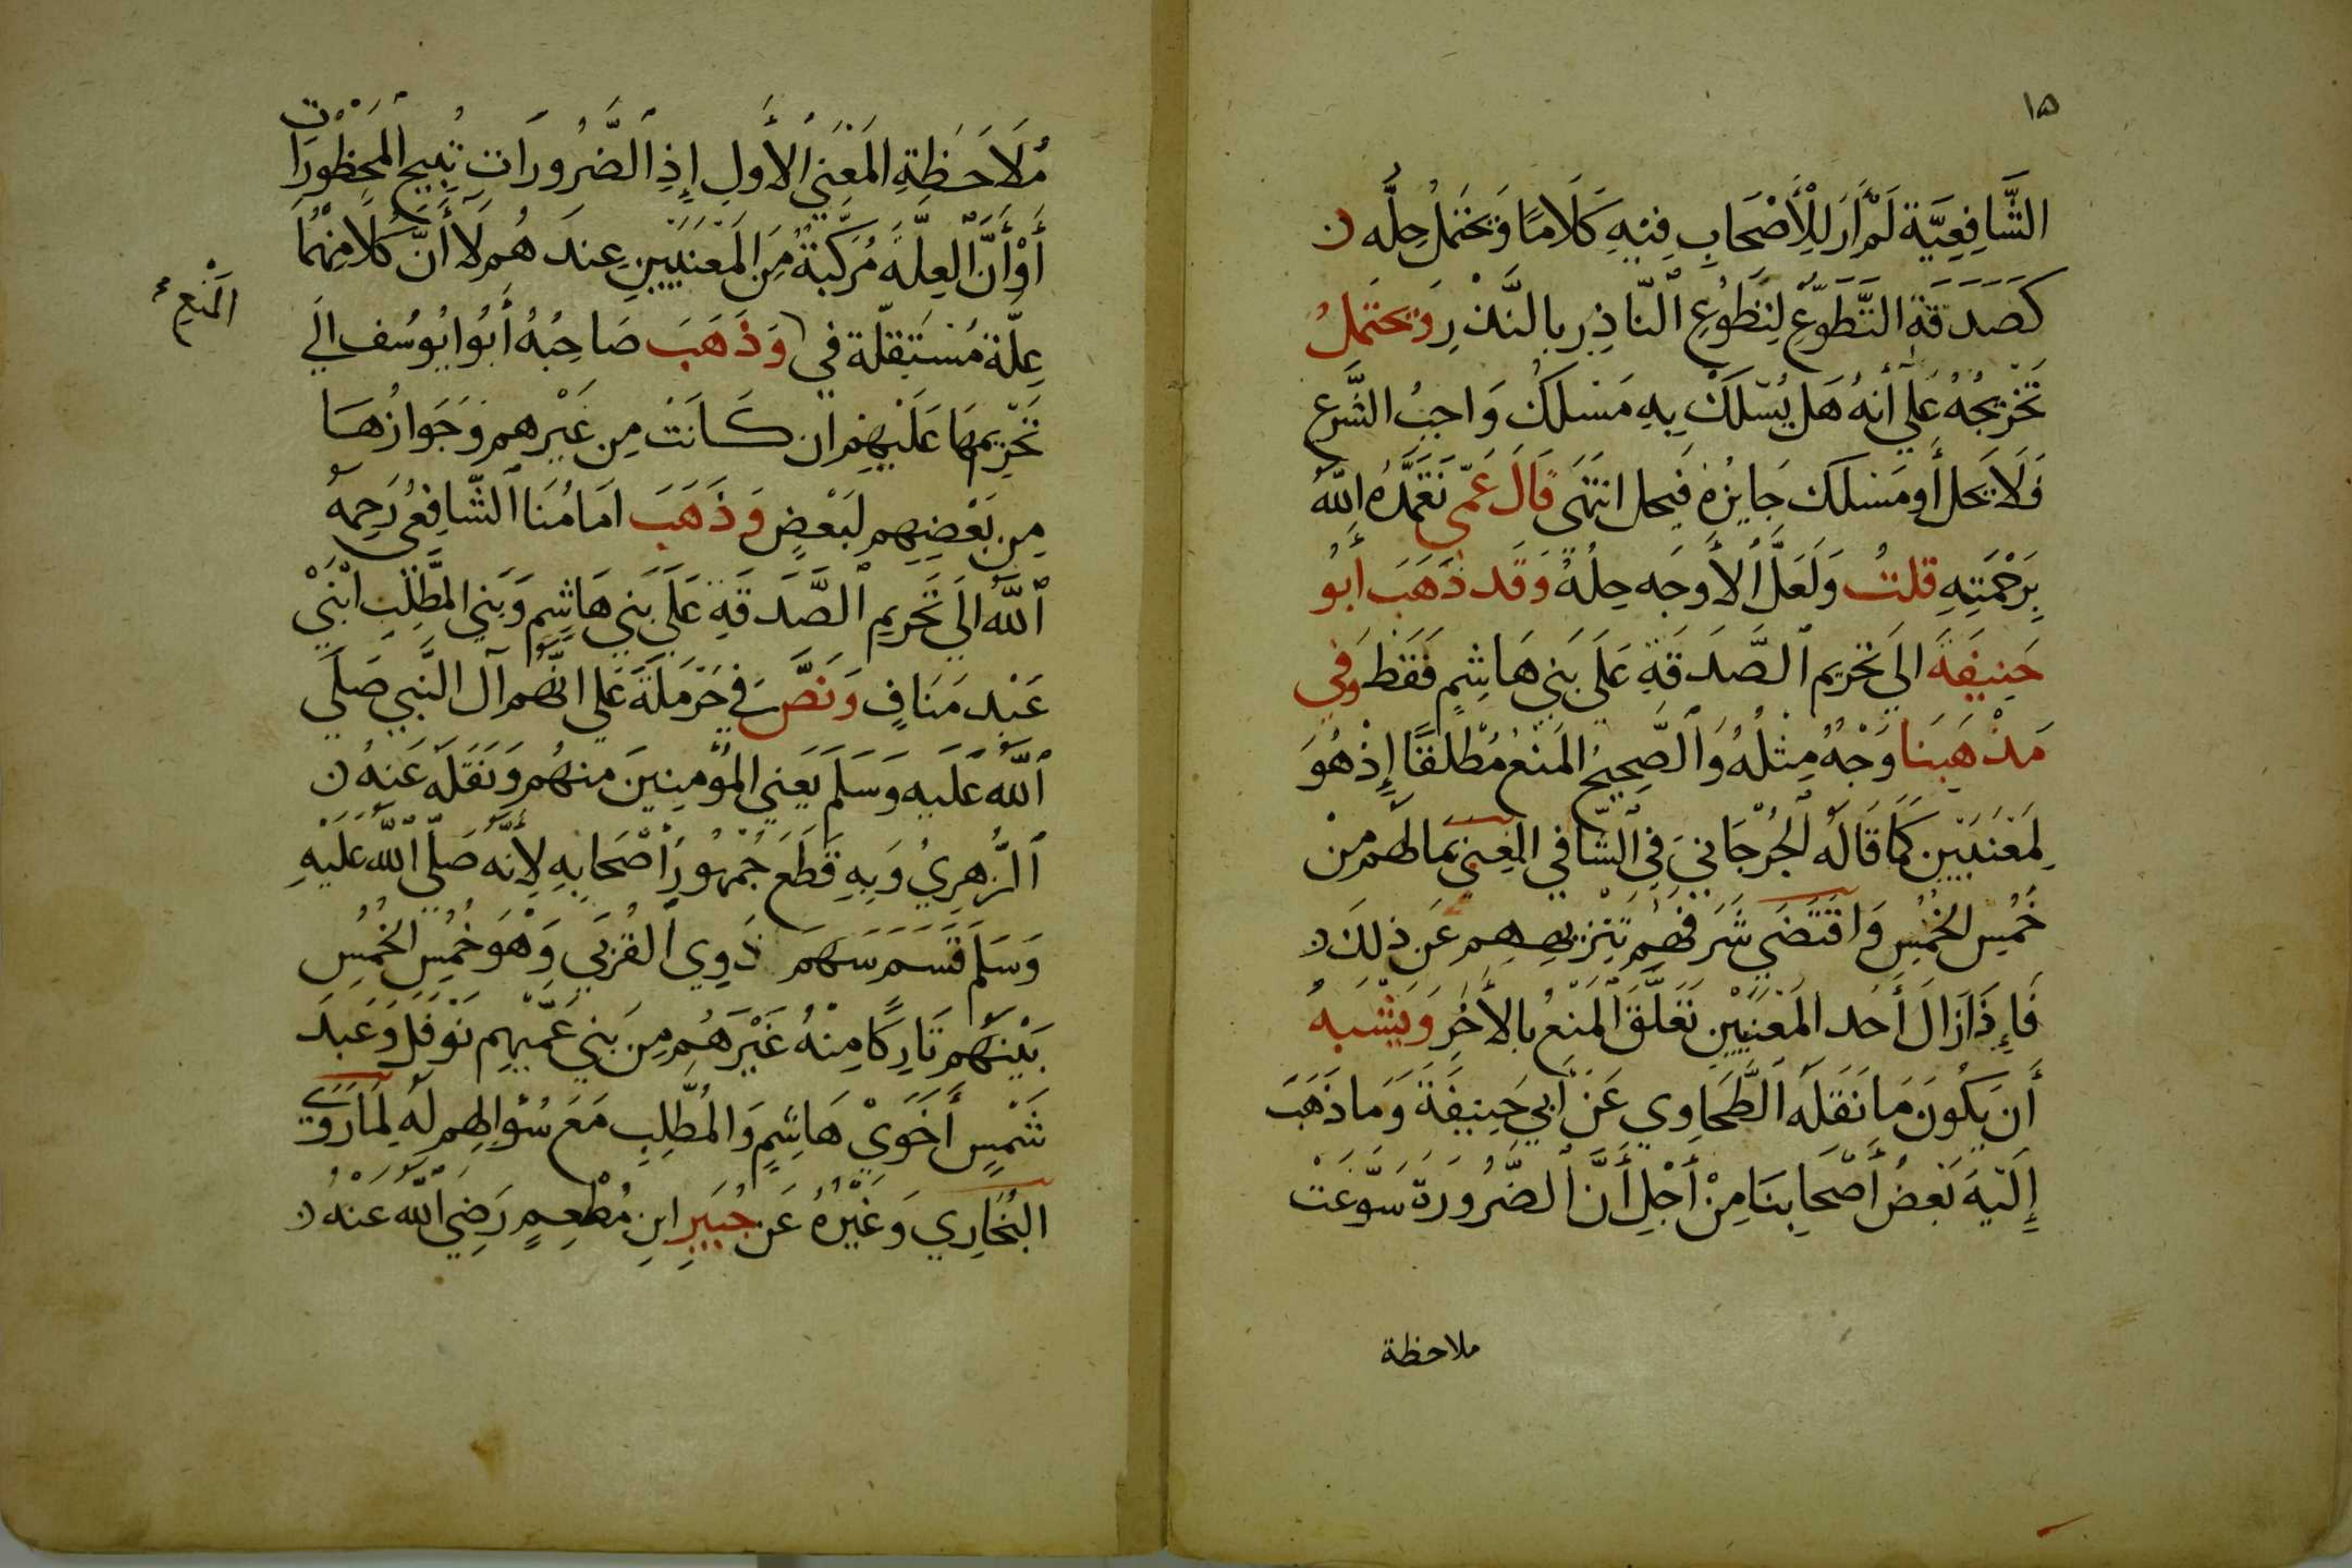 ١٥
الشَّافِعِيَّة لَمْ أَرَ لِلْأَصْحَابِ فِيْهِ كَلَامًا وَيَحْتَمِلُ حِلُّه
كَصَدَقَةِ التَّطَوّعِ لِتَطَوُعِ النَّاذِرِ بِالنَّذْرِ وَيَحْتَمِلُ
تَخْرِيجُهُ عَلى أنهُ هَل يُسْلَكُ بِهِ مَسْلَكَ وَاجبُ الشَّرعِ
فَلَا يَحل أَو مَسْلَكَ جَايِزهُ فَيحل انتَهَى قَالَ عَمّى تَغَمَّدَهُ اللهُ
بِرَحْمَتِهِ قلتُ وَلَعَلَّ الأَوجَه حِلهُ وَقَد ذَهَبَ أَبُو
حَنِيفَةَ الَي تَحْرِيم الصَّدَقَةِ عَلَى بَنِي هَاشِمٍ فَقَط وَفِي
مَذْهَبِنَا وَجْهُ مِثْلُهُ وَالصَّحِيحُ المَنْعُ مُطْلَقًا إِذْ هُوَ
لِمَعْنَيَيْنِ كَمَا قَالَهُ الجُرْجَانيّ فِي الشّافي المعنى بمَا لهُم مِنْ
خُمْسِ الخُمْسِ وَاقْتَضَي شَرَفهُم تنْزيههم عَن ذلكَ
فَإِذَا زَالَ أَحَد المَعْنَيَيْنِ تَعَلَّقَ المَنْعُ بِالأَخَرِ وَيَشْبَهُ
أَن يَكُونَ مَا نَقَلَهُ الطَّحَاوِي عَنْ أَبِي حَنِيفَةَ وَمَا ذَهَبَ
إِلَيْهَ بَعْضُ أَصْحَابِنَا مِنْ أَجْلِ أَنَّ الضَّرُورَةَ سَوَّغَتْ
ملاحظة
مُلَاحَظَةِ المَعْنِي الأَولِ إِذِ الضَّرُورَاتِ تُبِيحُ المحْظُورَات
أَوْ أَنَّ العِلَّةَ مُرَكَّبَةُ مِنَ المَعْنَيَيْنِ عِندَهُم لَا أَنَّ كُلا مِنْهُمَا
عِلَّة مُسْتَقِلَّة في وَذَهَبَ صَاحِبُهُ أَبُو ايُوسُف الَي
المَنْع
تَحْرِيمهَا عَلَيْهِم ان كَانَتْ مِن غَيْرهم وَجَوَازُهَا
مِن بَعْضِهِم لبَعْضٍ وَذَهَبَ امَامُنَا الشَّافِعُى رَحِمهُ
اللهُ الَي تَحْرِيمِ الصَّدَقَةِ عَلَي بَنِي هَاشِم وَبَنِي المطَّلِبِ ابْنَيْ
عَبْد مَنَافٍ وَنَصَّ فِي حَرْمَلَةَ عَلى انَّهُم آل النَّبي صَلَي
اللهُ عَلَيهِ وَسَلَم يَعْنِي المُؤْمِنِينَ منهُم وَنَقَلَه عَنهُ
الزُّهرِيُ وَبِهِ قَطَعَ جُمْهُورُ أَصْحَابِهِ لِأَنَّهُ صَلّى اللهُ عَلَيْهِ
وَسَلَمَ قَسَم سَهمَ ذَوِي القُرْبَي وَهُوَ خُمْسِ الخُمْسِ
بَيْنَهُم تَارِكًا مِنْهُ غَيْرَهُم مِن بَنِي عَمّهِم نَوْفَل وَعَبدَ
شَمْسٍ أَخَوَيْ هَاشِمٍ وَالمُطَّلِبِ مَعَ سُؤَالِهِم لَهُ لِمَا رَوَى
البُخَارِي وَغَيْرُهُ عَن جُبَيرِ ابنِ مُطْعِمٍ رَضِيَ اللهُ عَنْهُ